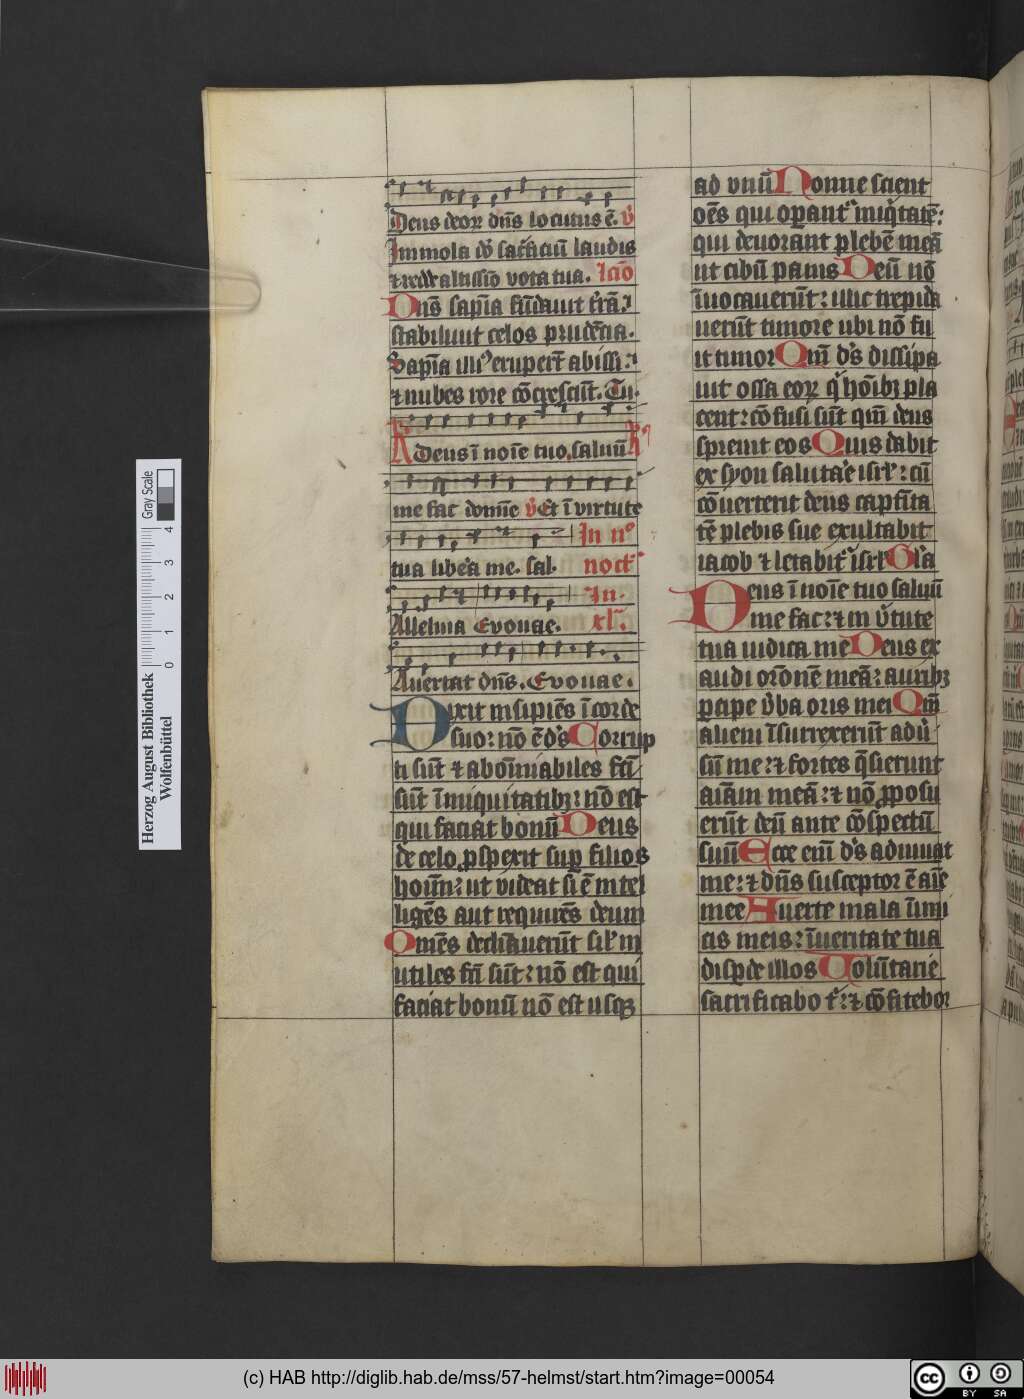 Deus deoꝝ dn̄s locutus ē. v̄
Immola dō sac̄ficiū laudis
⁊ redde altissīo vota tua. lc̄io
Dn̄s sapīa fūdauit t̄rā:
stabiliuit celos prudēcia.
Sapīa illiꝰ erupert̄ abissi:
⁊ nubes rore cōcrescūt. Tu.
A Deus ī noīe tuo, saluū R
me fac domīe v̄ Et ī virtute
In nᵒ
tua libera me. sal. noct̄
In.
Alleluia Evouae. xl.
Auertat dn̄s. Evouae.
Dixit insipiēs ī corde
suo: nō ē d's Corrup
ti sūt ⁊ aboīnabiles fc̄i
sūt īiniquitatibꝫ: nō est
qui faciat bonū Deus
de celo ꝓspexit suꝑ filios
hoīm: ut videat si ē intel
ligēs aut requirēs deum
Omēs declīauerūt sil' in
utiles fc̄i sūt: nō est qui
faciat bonū nō est usqꝫ
ad vnū Nonne scient
oēs qui oꝑant' iniq'tatē:
qui deuorant plebē meā
ut cibū panis Deū nō
īuocauerūt: illic trepida
uerūt timore ubi nō fu
it timor Qm̄ d's dissipa
uit ossa eoꝝ q' hoīibꝫ pla
cent: cōfusi sūt qm̄ deus
spreuit eos Quis dabit
ex syon salutare isrl': cū
cōuerterit deus captīta
tē plebis sue exultabit
iacob ⁊ letabit' isrl' Gl'a
Deus ī noīe tuo saluū
me fac: ⁊ in v̄tute
tua iudica me Deus ex
audi orōnē meā: auribꝫ
ꝑcipe v̄ba oris mei Qm̄
alieni īsurrexerūt adu'
sū me: ⁊ fortes q̄sierunt
aīam meā: ⁊ nō ꝓposu
erūt deū ante cōspectū
suū Ecce eīm d's adiuuat
me: ⁊ dn̄s susceptor ē aīe
mee Auerte mala īimi
cis meis: īueritate tua
disꝑde illos Uolūtarie
sacrificabo t': ⁊ cōfitebor
Herzog August Bibliothek
Wolfenbüttel
0 1 2 3 4
Gray Scale
(c) HAB http://diglib.hab.de/mss/57-helmst/start.htm?image=00054
cc BY SA